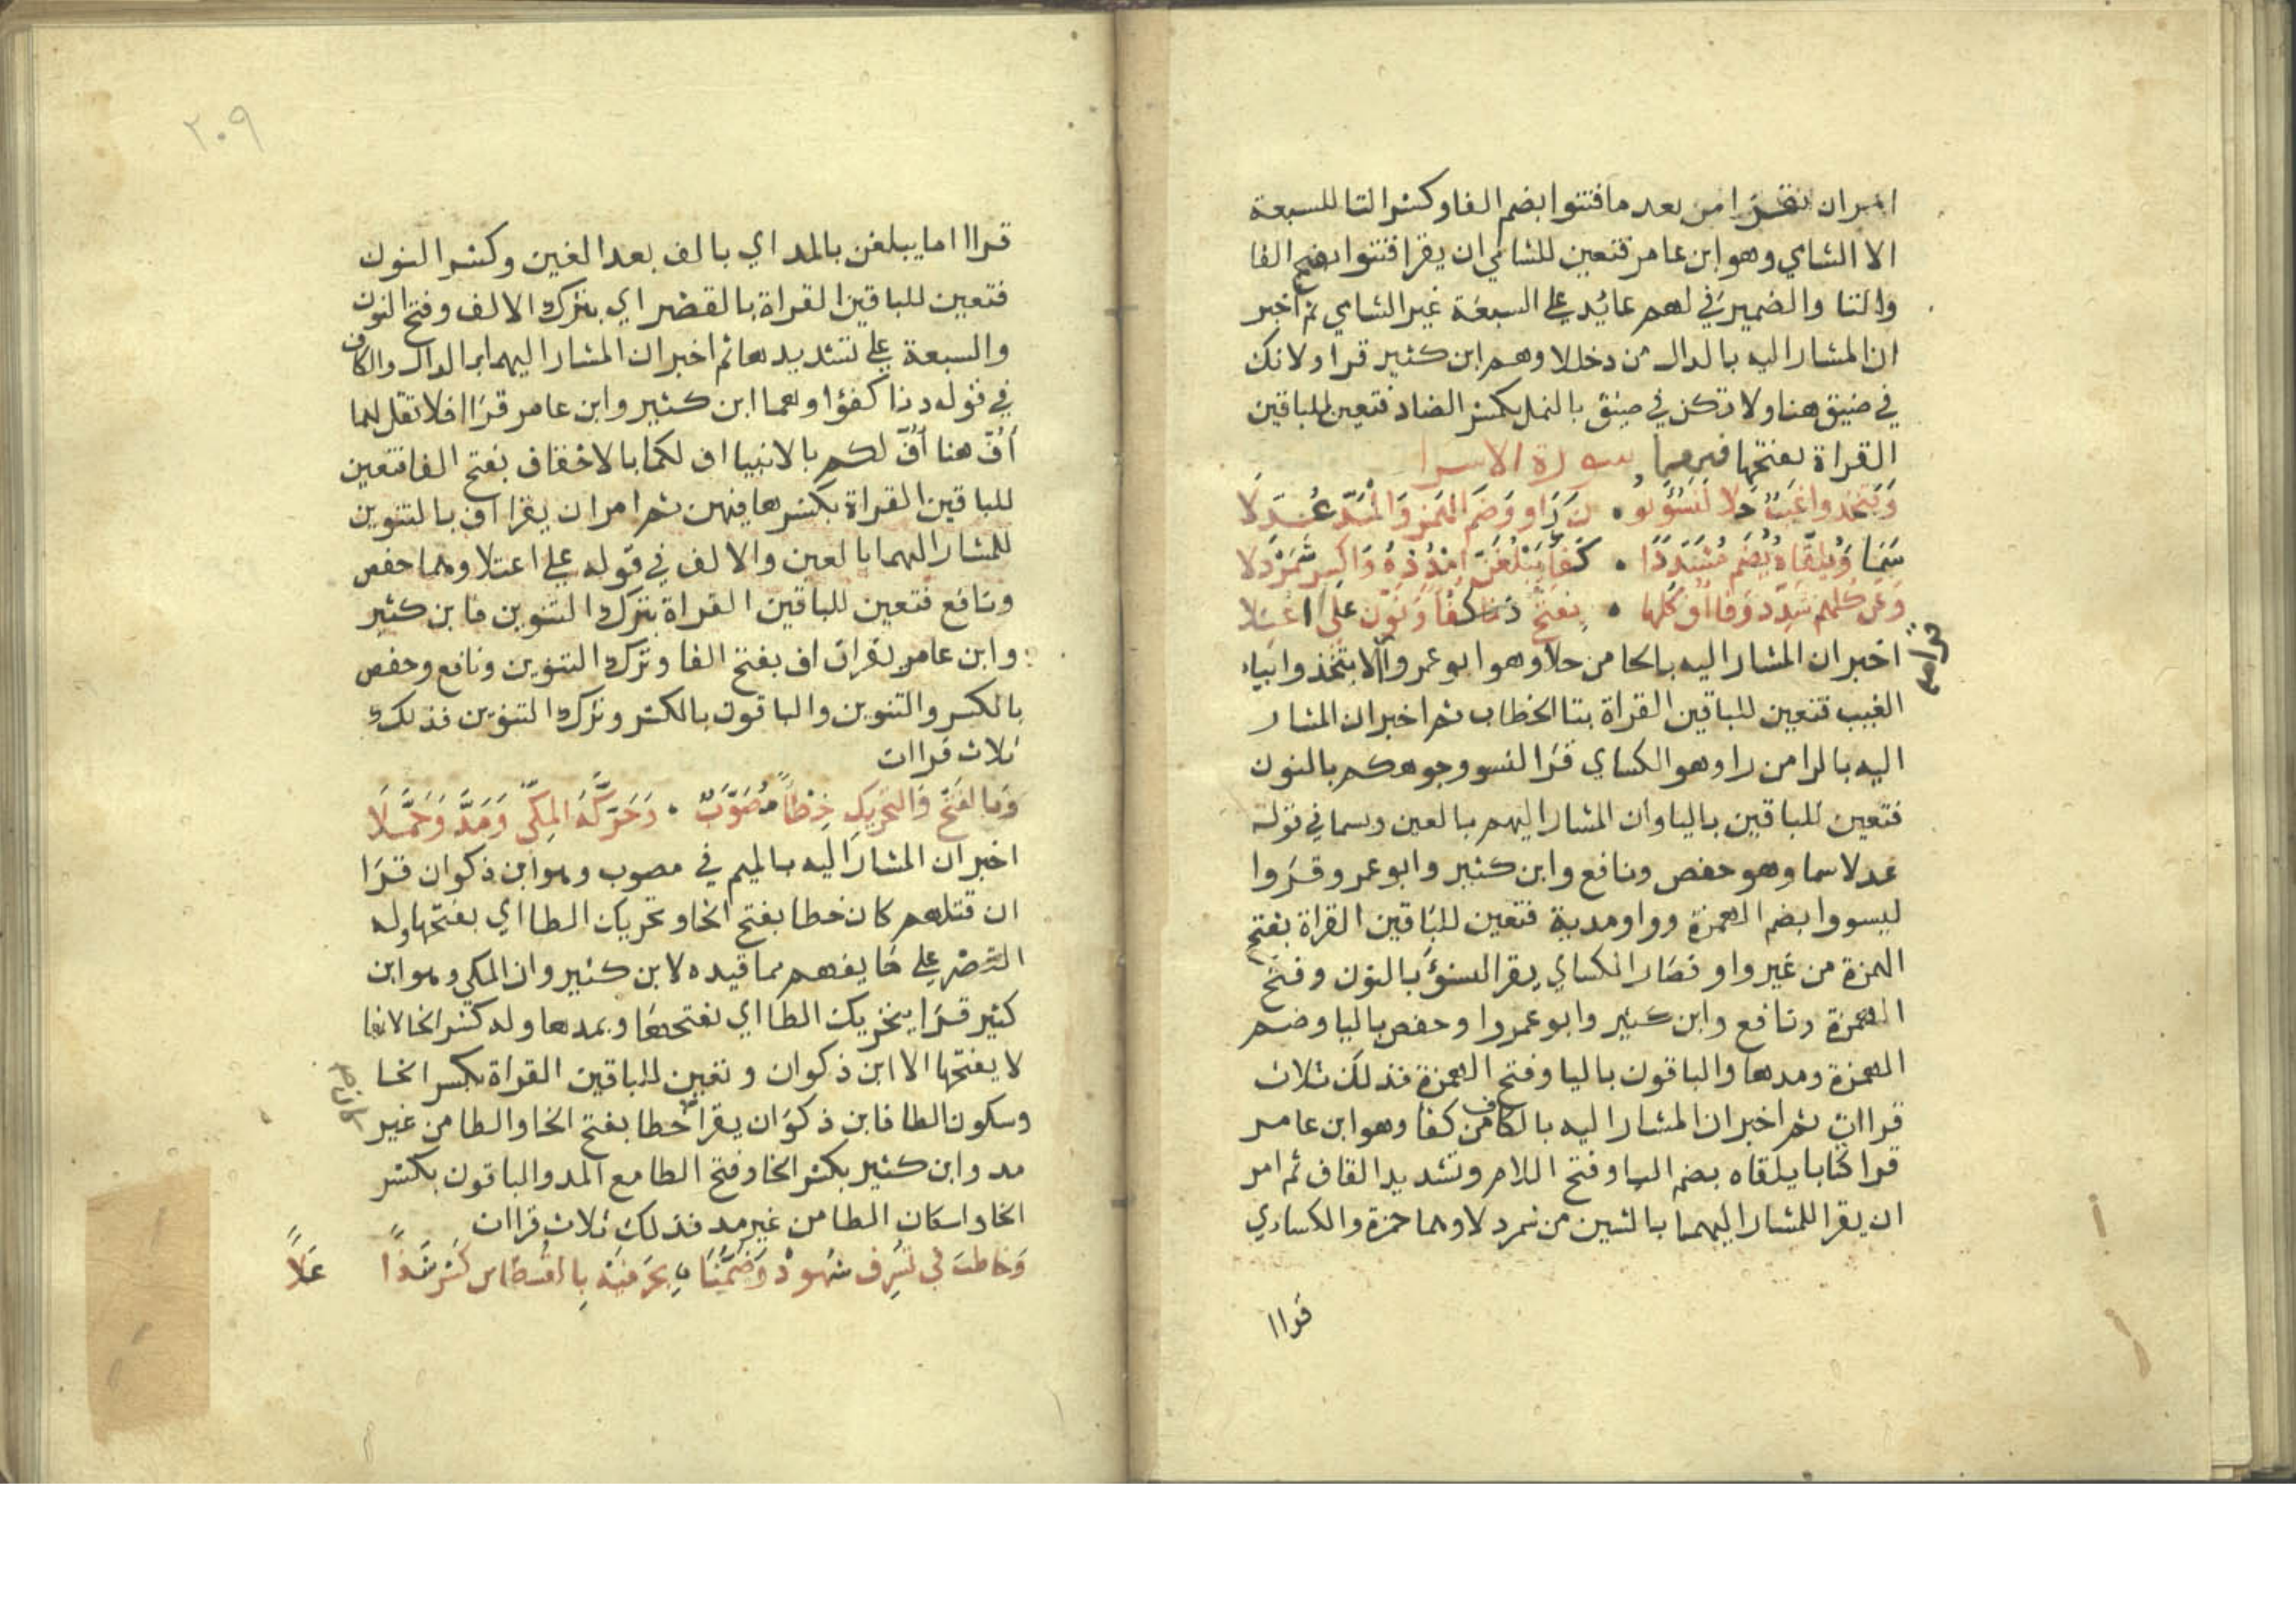 اخبر ان نقرا من بعد ما فتنوا بضم الفا وكسر التا للسبعة
الا الشامي وهو ابن عامر فتعين للشامي ان يقرا فتنوا بفتح الفا
والتا والضمير في لهم عايد على السبعة غير الشامي ثم اخبر
ان المشار اليه بالدال من دخللا وهم ابن كثير قرا ولا تك
في ضيق هنا ولا تكن في ضيق بالنمل بكسر الضاد فتعين للباقين
القراة بفتحها فيهما سورة الاسرا
وَيَتَّخِذُوا غَيْبٌ حَلا لِيَسُوءَ نُو . نُ رَاوٍ وَضَمُّ الهَمْزِ وَالْمَدِّ عُدِّلَا
سَمَا وَيُلَقَّاهُ يُضَمُّ مُشَدَّدًا . كَفَا يَبْلُغَنَّ امْدُدْهُ وَاكْسِرْ شَمَرْدَلا
وَعَنْ كُلِّهِم شَدِّدْ وَفَا أُفِّ كُلِّهَا . بِفَتْحٍ دَنا كفًا وَنَوِّنْ عَلَى اعْتَلا
اخبر ان المشار اليه بالحا من حلا وهو ابو عمرو الا يتخذوا بياء
قرا
الغيب فتعين للباقين القراة بتا الخطاب ثم اخبر ان المشار
اليه بالرا من راو وهو الكساي قرا لنسو وجوهكم بالنون
فتعين للباقين باليا وان المشار اليهم بالعين وسما في قوله
عدلا سما وهو حفص ونافع وابن كثير وابو عمرو قروا
ليسووا بضم الهمزة وواو مدية فتعين للباقين القراة بفتح
الهمزة من غير واو فصار الكساي يقرا لنسوءَ بالنون وفتح
الهمزة ونافع وابن كثير وابو عمروا وحفص باليا وضم
الهمزة ومدها والباقون باليا وفتح الهمزة فذلك ثلاث
قراات ثم اخبر ان المشار اليه بالكاف من كفا وهو ابن عامر
قرا كتابا يلقاه بضم اليا وفتح اللام وتشديد القاف ثم امر
ان يقرا للمشار اليهما بالشين من شمردلا وهما حمزة والكساءي
قراا
٢٠٩
قراا اما يبلغن بالمد اي بالف بعد الغين وكسر النون
فتعين للباقين القراة بالقصر اي بترك الالف وفتح النون
والسبعة على تشديدها ثم اخبر ان المشار اليهما بالدال والكاف
في قوله دنا كفؤا وهما ابن كثير وابن عامر قراا فلا تقل لهما
أفَّ هنا أفَّ لكم بالانبيا اف لكما بالاحقاف بفتح الفا فتعين
للباقين القراة بكسرها فيهن ثم امر ان يقرا اف بالتنوين
للمشار اليهما بالعين والالف في قوله على اعتلا وهما حفص
ونافع فتعين للباقين القراة بترك التنوين فابن كثير
وابن عامر يقران اف بفتح الفا وترك التنوين ونافع وحفص
بالكسر والتنوين والباقون بالكسر وترك التنوين فذلك
ثلاث قراات
وَبِالفَتْحِ وَالتَّحْرِيكِ خِطْأً مُصَوَّبٌ . وَحَرَّكَهُ المَكِّي وَمَدَّ وَجَمَّلَا
اخبر ان المشار اليه بالميم في مصوب وهو ابن ذكوان قرا
ان قتلهم كان خطا بفتح الخا وتحريك الطا اي بفتحها وله
القصر على ما يفهم مما قيده لابن كثير وان المكي وهو ابن
كثير قرا بتحريك الطا اي بفتحها وبمدها وله كسر الخا لانها
لا يفتحها الا ابن ذكوان وتعين للباقين القراة بكسر الخا
وسكون الطا فابن ذكوان يقرا خطا بفتح الخا والطا من غير
كان
مد وابن كثير بكسر الخا وفتح الطا مع المد والباقون بكسر
الخا واسكان الطا من غير مد فذلك ثلاث قراات
وَخَاطَبَ في تُسْرِف شُهودٌ وَضَمُّنَا . بِحَرفَيْه بِالقُسْطَاسِ كَسْرُ شَذًا عَلًا